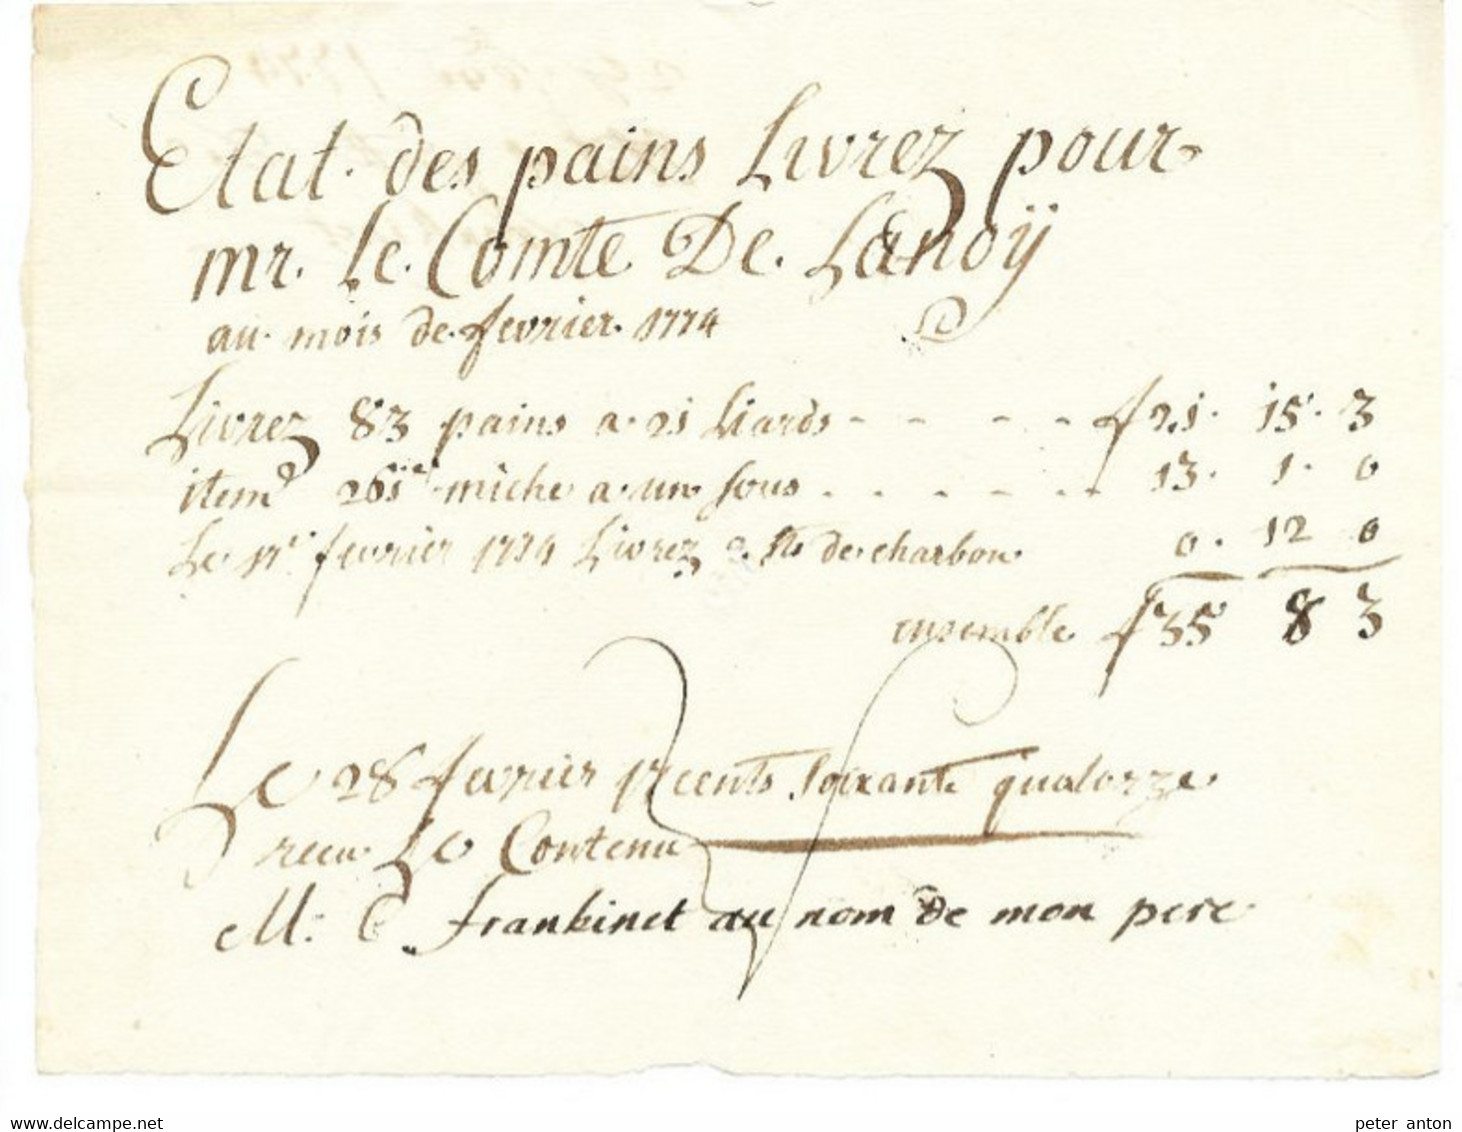 Etat des pains Livrez pour
mr. Le Comte De Lanoÿ
au mois de fevrier 1774
Livrez 83 pains a 21 Liards - - - - - f 21. 15. 3
item 261 miche a un sous . - - - - - 13. 1. 0
Le 17e fevrier 1774 Livrez de charbon 0. 12 0
ensemble f 35 8 3
Le 28 fevrier 17cents soixante quatorze
recu Le Contenu
M: frankinet au nom de mon pere
www.delcampe.net
peter anton